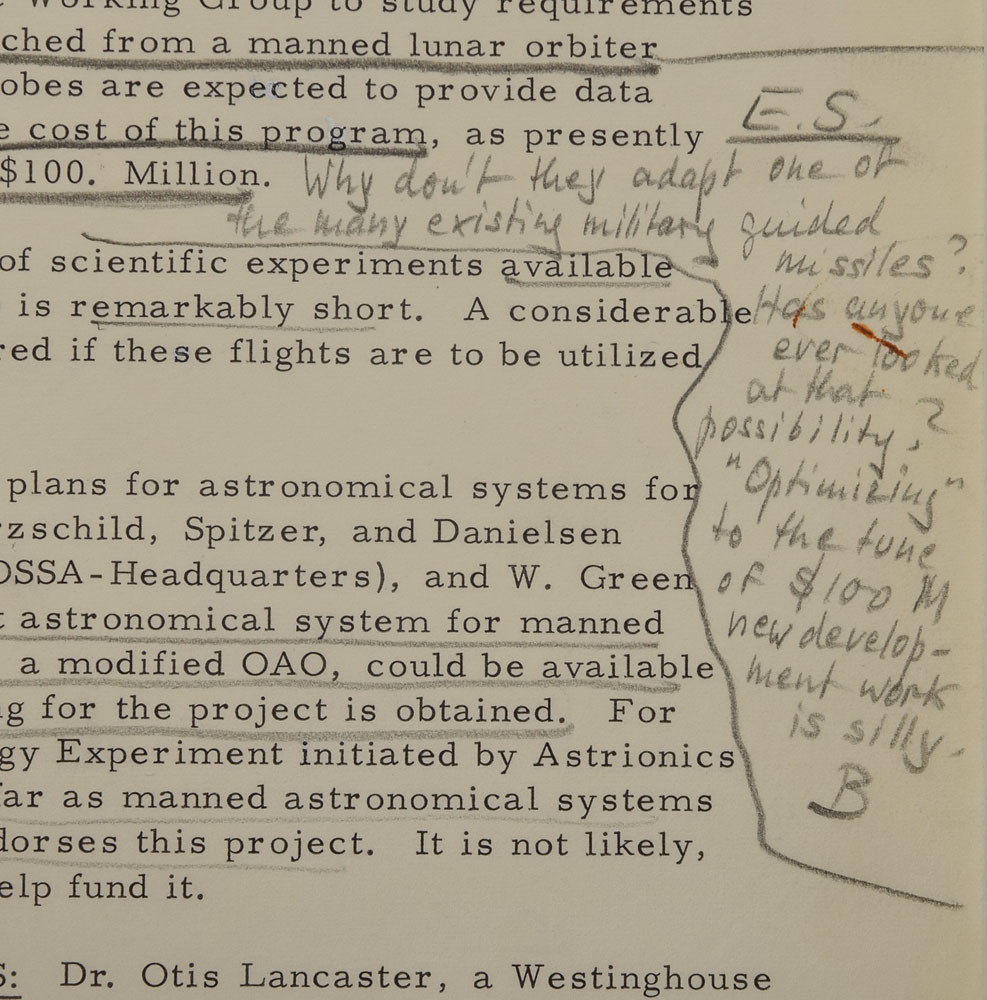 Working Group to study requirements
ched from a manned lunar orbiter
obes are expected to provide data
E.S.
e cost of this program, as presently
$100. Million. Why don't they adapt one of
the many existing military guided
missiles?
of scientific experiments available
is remarkably short. A considerable
Has anyone
ever looked
at that
possibility?
red if these flights are to be utilized
"Optimizing"
to the tune
of $100 M
new develop-
ment work
is silly.
B
plans for astronomical systems for
rzschild, Spitzer, and Danielsen
OSSA-Headquarters), and W. Green
t astronomical system for manned
a modified OAO, could be available
ng for the project is obtained. For
gy Experiment initiated by Astrionics
far as manned astronomical systems
dorses this project. It is not likely,
elp fund it.
S: Dr. Otis Lancaster, a Westinghouse